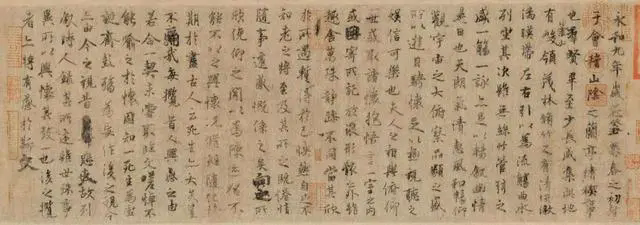 永和九年歲在癸丑暮春之初會
于會稽山陰之蘭亭脩稧事
也群賢畢至少長咸集此地
有崇山峻領茂林脩竹又有清流激
湍暎帶左右引以為流觴曲水
列坐其次雖無絲竹管弦之
盛一觴一詠亦足以暢敘幽情
是日也天朗氣清惠風和暢仰
觀宇宙之大俯察品類之盛
所以遊目騁懷足以極視聽之
娛信可樂也夫人之相與俯仰
一世或取諸懷抱悟言一室之內
或因寄所託放浪形骸之外雖
趣舍萬殊靜躁不同當其欣
於所遇蹔得於己怏然自足不
知老之將至及其所之既惓情
隨事遷感慨係之矣向之所欣
俛仰之閒以為陳迹猶不
能不以之興懷況脩短隨化終
期於盡古人云死生亦大矣豈
不痛哉每攬昔人興感之由
若合一契未嘗不臨文嗟悼不
能喻之於懷固知一死生為虛
誕齊彭殤為妄作後之視今
亦由今之視昔悲夫故列
敘時人錄其所述雖世殊事
異所以興懷其致一也後之攬
者亦將有感於斯文